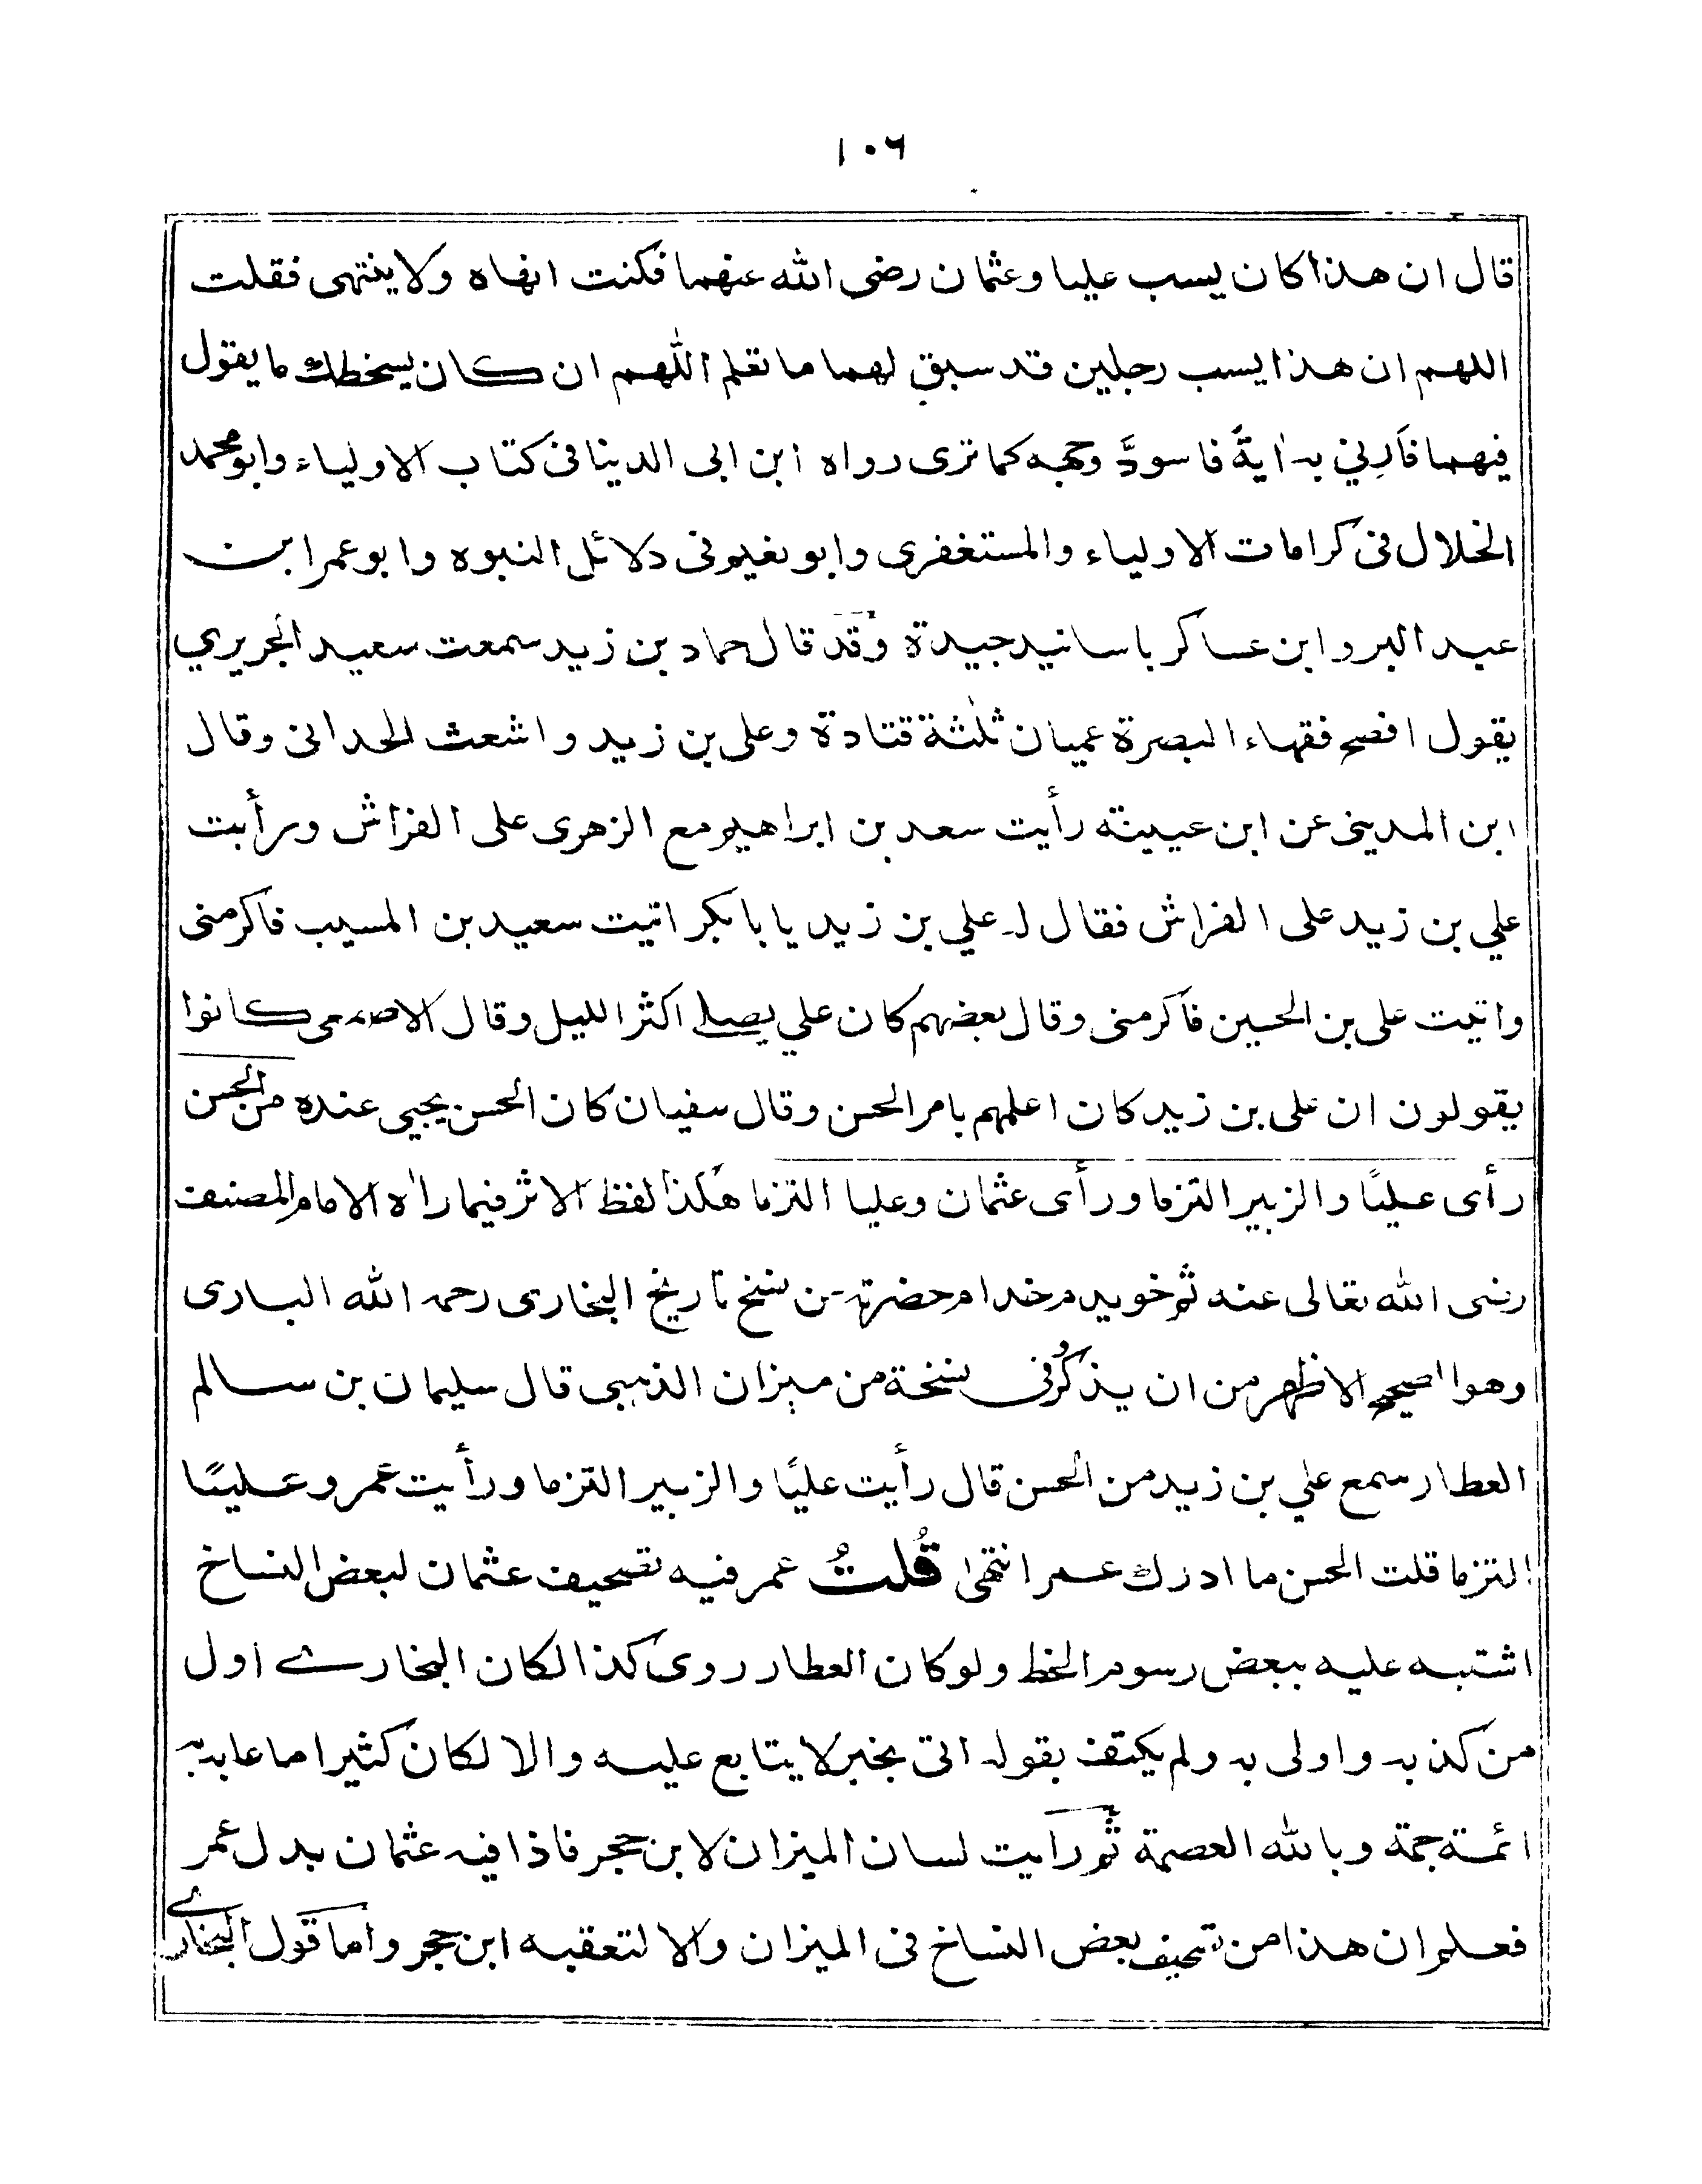 ١٠٦
قال ان هذا كان يسب عليا وعثمان رضى الله عنهما فكنت انهاه ولا ينتهى فقلت
اللهم ان هذا يسب رجلين قد سبق لهما ما تعلم اللهم ان كان يسخطك ما يقول
فيهما فأرِني به اٰيةً فاسودَّ وجهه كما ترى رواه ابن ابى الدينا فى كتاب الاولياء وابو محمد
الخلال فى كرامات الاولياء والمستغفرى وابو نعيم فى دلائل النبوه وابو عمر ابن
عبد البر وابن عساكر باسانيد جيدة وقد قال حماد بن زيد سمعت سعيد الجريري
يقول افصح فقهاء البصرة عميان ثلٰثة قتادة وعلى بن زيد واشعث الحدانى وقال
ابن المدينى عن ابن عيينه رأيت سعد بن ابراهيم مع الزهرى على الفراش ورأيت
علي بن زيد على الفراش فقال له علي بن زيد يا بابكر اتيت سعيد بن المسيب فاكرمنى
واتيت على بن الحسين فأكرمنى وقال بعضهم كان علي يصلے اكثر الليل وقال الاصمعى كانوا
يقولون ان على بن زيد كان اعلمهم بامر الحسن وقال سفيان كان الحسن يجيى عنده من الحسن
رأى عليًا والزبير التزما ورأى عثمان وعليا التزما هكذا لفظ الاثر فيما راٰه الامام المصنف
رضى الله تعالى عنه ثم خويدم خدام حضرته من نسخ تاريخ البخارى رحمه الله البارى
وهو اصيح الاظهر من ان يذكر وفى نسخة من ميزان الذهبى قال سليمان بن سالم
العطار سمع علي بن زيد من الحسن قال رأيت عليًا والزبير التزما ورأيت عمر وعليًا
التزما قلت الحسن ما ادرك عمر انتهىٰ قُلتُ عمر فيه تصحيف عثمان لبعض النساخ
اشتبه عليه ببعض رسوم الخط ولو كان العطار روى كذا لكان البخارے اول
من كذبه واولى به ولم يكتف بقوله اتى بخبر لا يتابع عليه والا لكان كثيرا ما عابه به
ائمة جمة وبالله العصمة ثم رايت لسان الميزان لابن حجر فاذا فيه عثمان بدل عمر
فعلم ان هذا من تصحيف بعض النساخ فى الميزان والا لتعقبه ابن حجر واما قول البخارے